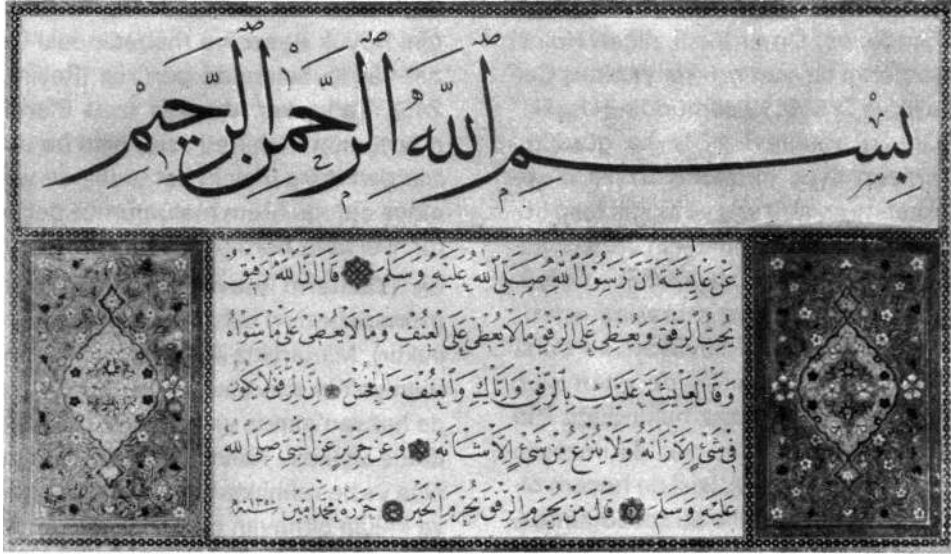 بِسْمِ اللهِ الرَّحْمٰنِ الرَّحِيمِ
عَنْ عَايِشَةَ اَنَّ رَسُوْلَ اللهِ صَلَّى اللهُ عَلَيْهِ وَسَلَّمَ قَالَ اِنَّ اللهَ رَفِيْقٌ
يُحِبُّ الرِّفْقَ وَيُعْطِى عَلَى الرِّفْقِ مَا لَا يُعْطِى عَلَى الْعُنُفِ وَمَا لَا يُعْطِى عَلَى مَا سِوَاهُ
وَقَالَ لِعَايِشَةَ عَلَيْكِ بِالرِّفْقِ وَاِيَّاكِ وَالْعُنُفَ وَالْفُحْشَ اِنَّ الرِّفْقَ لَا يَكُوْنُ
فِى شَئٍ اِلَّا زَانَهُ وَلَا يُنْزَعُ مِنْ شَئٍ اِلَّا شَانَهُ وَعَنْ جَرِيْرٍ عَنِ النَّبِىِّ صَلَّى اللهُ
عَلَيْهِ وَسَلَّمَ قَالَ مَنْ يُحْرَمِ الرِّفْقَ يُحْرَمِ الْخَيْرَ حَرَّرَهُ مُحَمَّد اَمِيْن سنه ١٣٥١